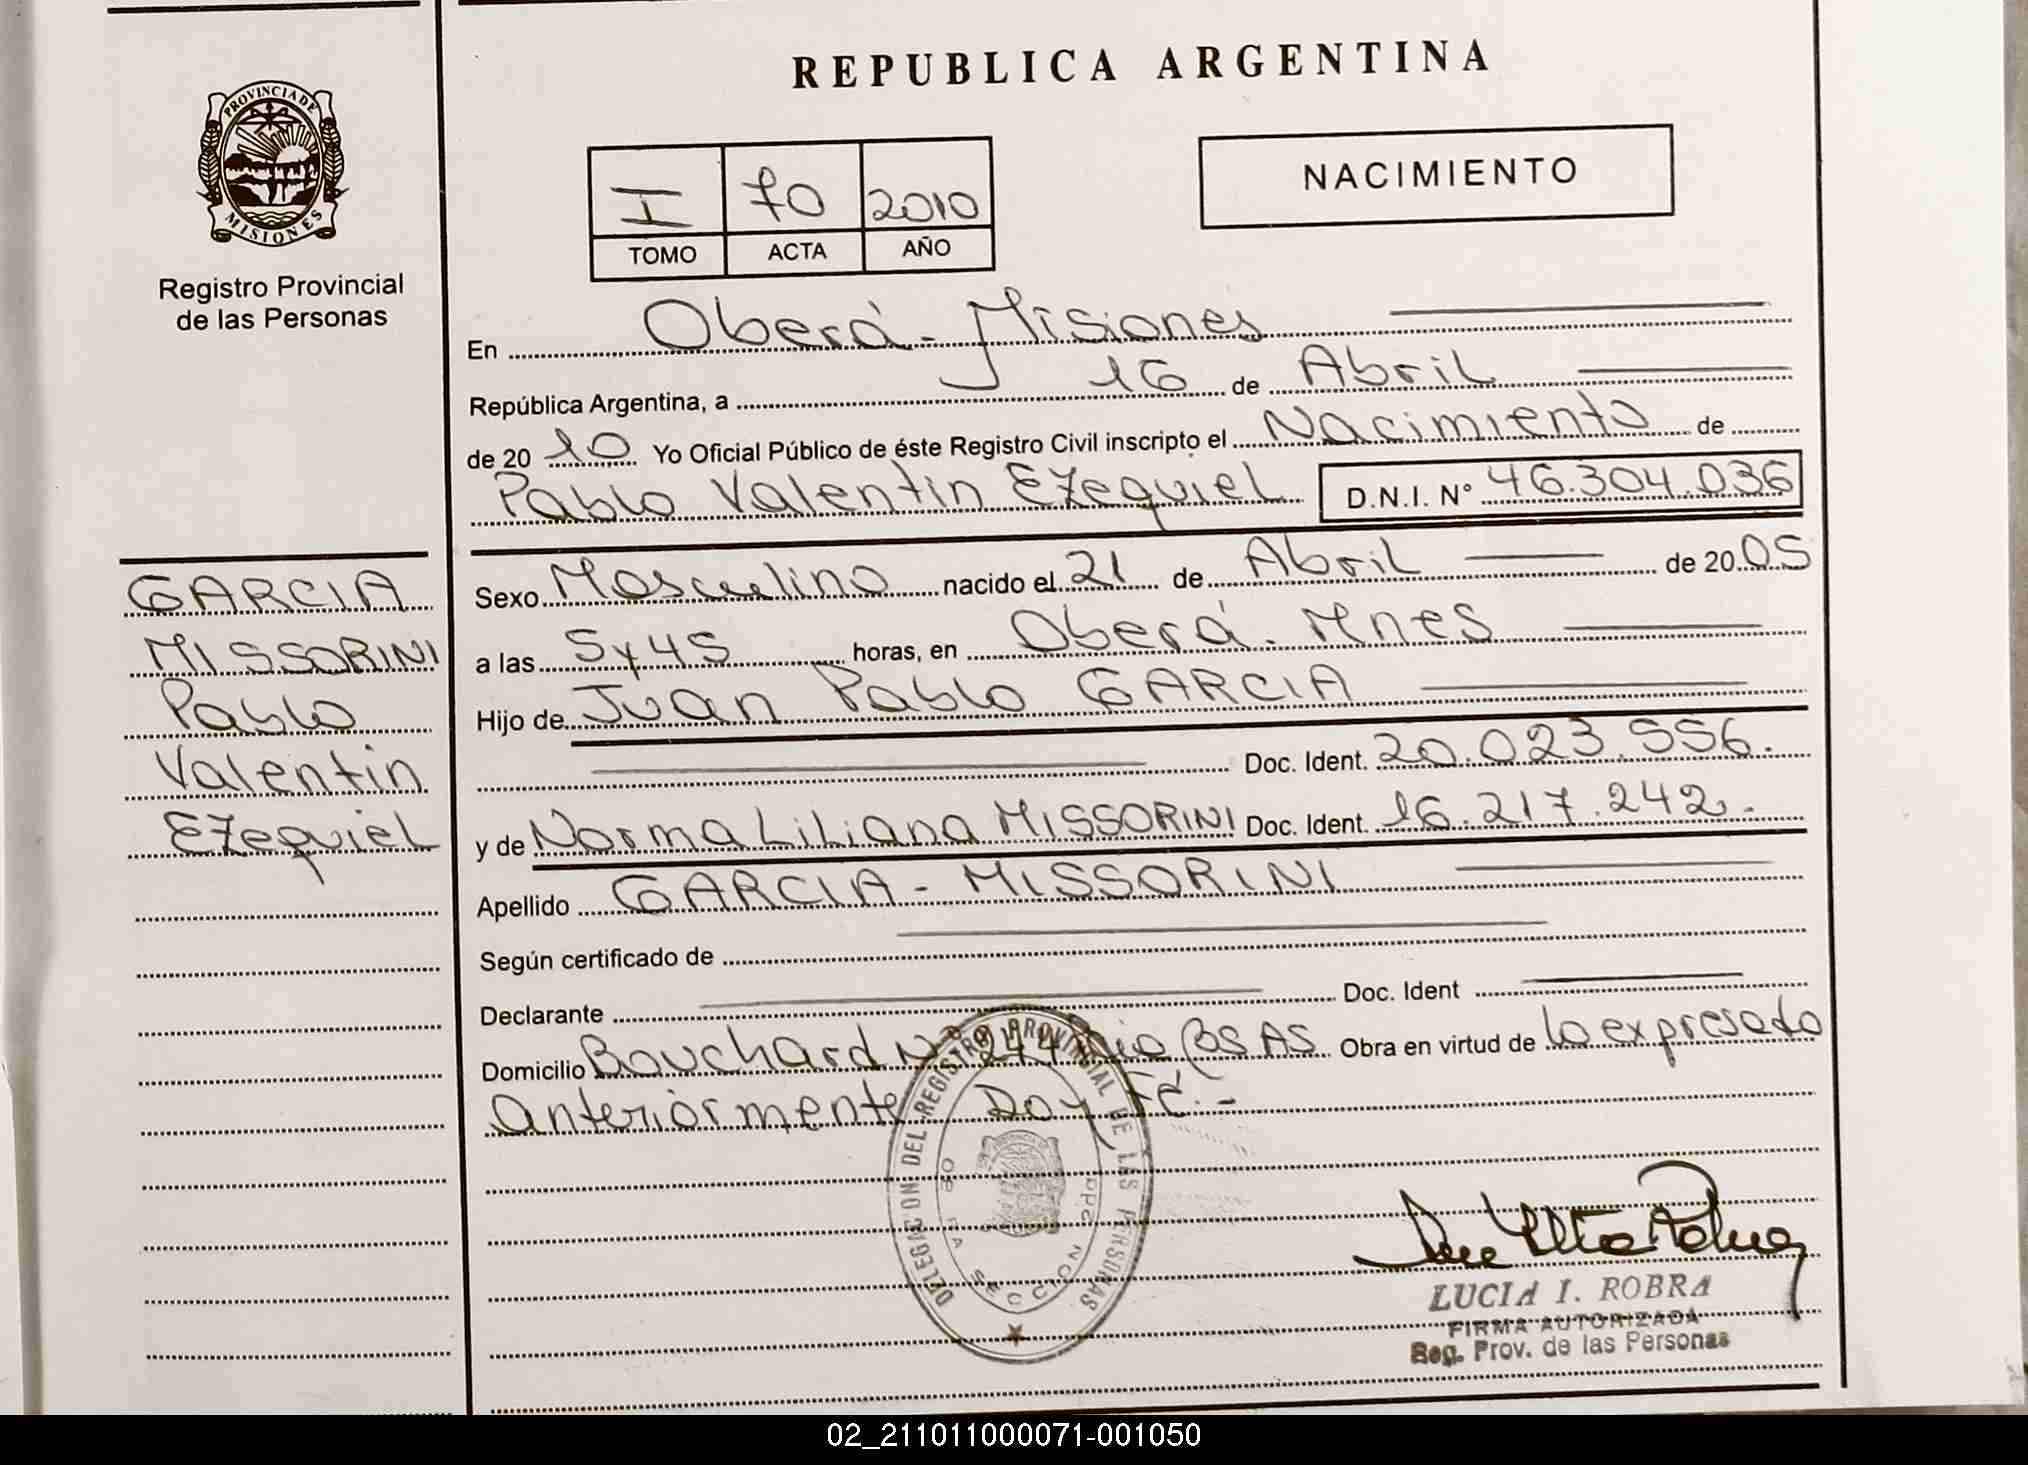 REPUBLICA ARGENTINA
PROVINCIA DE
MISIONES
Registro Provincial
de las Personas
NACIMIENTO
I 70 2010
TOMO ACTA AÑO
En Oberá - Misiones
República Argentina, a 16 de Abril
de 2010 Yo Oficial Público de éste Registro Civil inscripto el Nacimiento de
Pablo Valentin Ezequiel D.N.I. N° 46.304.036
GARCIA
MISSORINI
Pablo
Valentin
Ezequiel
Sexo Masculino nacido el 21 de Abril de 2005
a las 5 y 45 horas, en Oberá - Mnes
Hijo de Juan Pablo GARCIA
Doc. Ident. 20.023.556.
y de Norma Liliana MISSORINI Doc. Ident. 16.217.242.
Apellido GARCIA - MISSORINI
Según certificado de
Declarante Doc. Ident
Domicilio Bouchard N° 244 BS AS Obra en virtud de lo expresado
anteriormente Doy Fé.-
DELEGACION DEL REGISTRO PROVINCIAL DE LAS PERSONAS
SECCION
LUCIA I. ROBRA
FIRMA AUTORIZADA
Reg. Prov. de las Personas
02_211011000071-001050